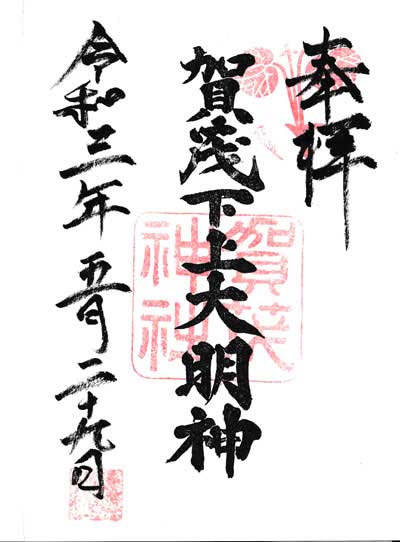 奉拝
賀茂下上大明神
賀茂神社
令和三年五月二十九日